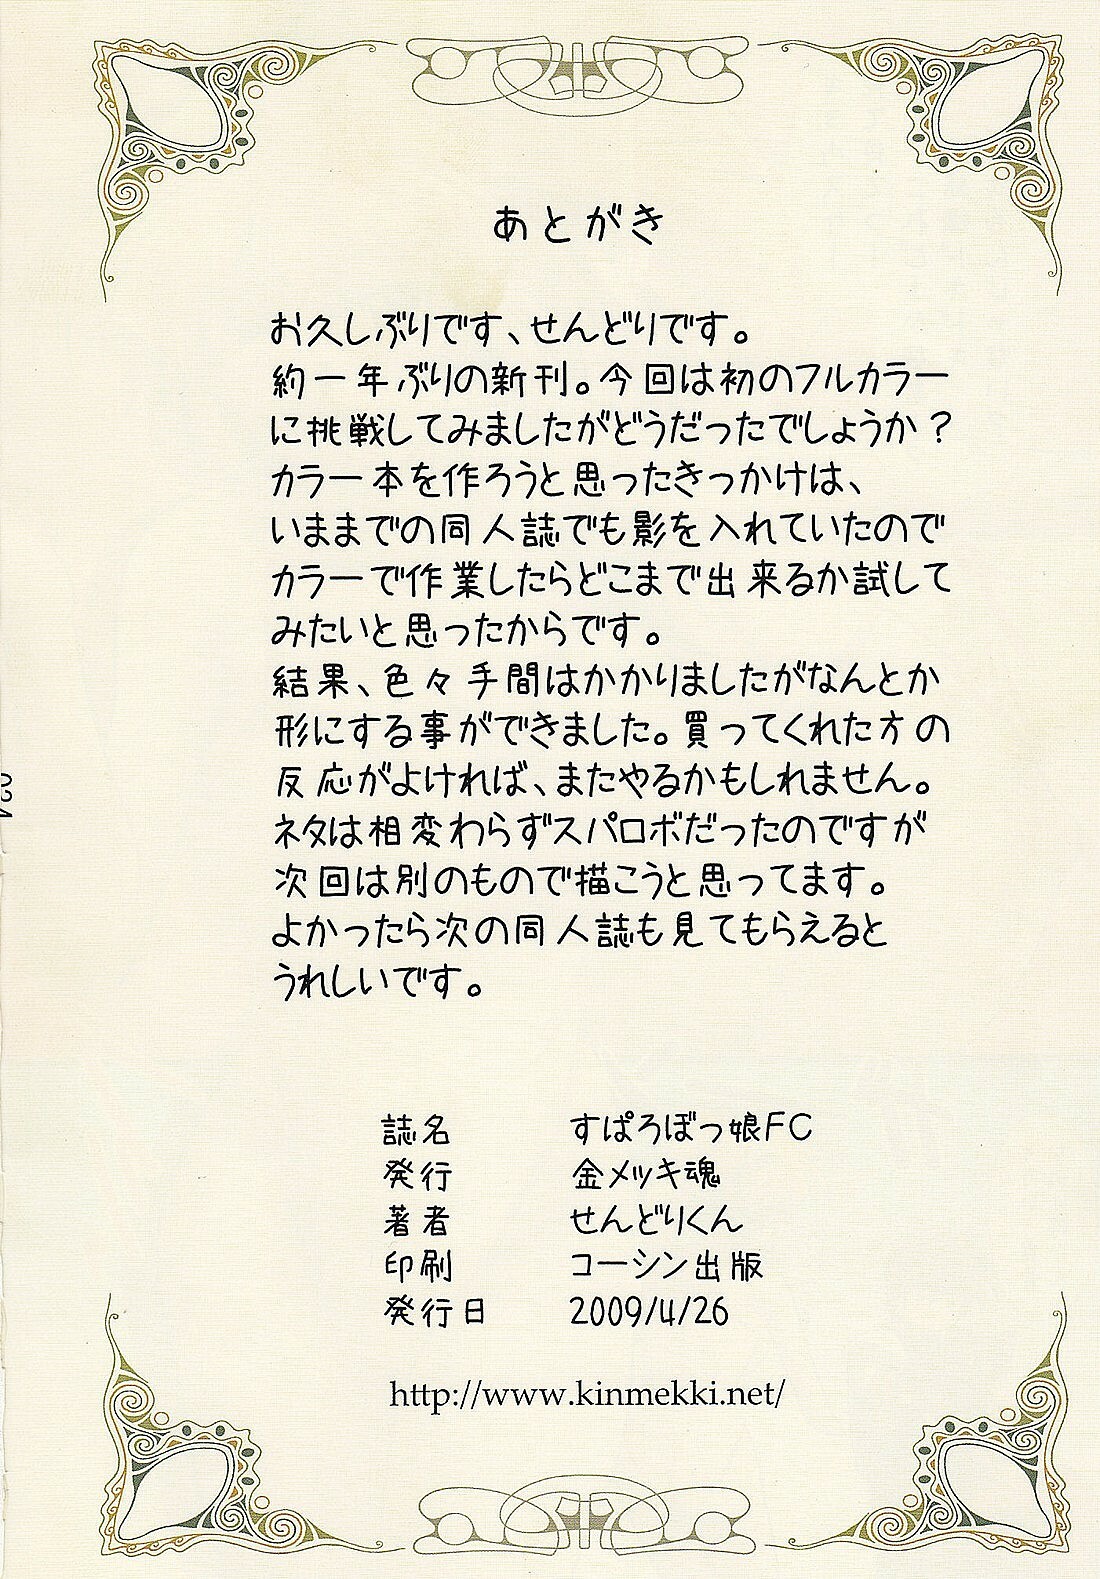 あとがき
お久しぶりです、せんどりです。
約一年ぶりの新刊。今回は初のフルカラー
に挑戦してみましたがどうだったでしょうか？
カラー本を作ろうと思ったきっかけは、
いままでの同人誌でも影を入れていたので
カラーで作業したらどこまで出来るか試して
みたいと思ったからです。
結果、色々手間はかかりましたがなんとか
形にする事ができました。買ってくれた方の
反応がよければ、またやるかもしれません。
ネタは相変わらずスパロボだったのですが
次回は別のもので描こうと思ってます。
よかったら次の同人誌も見てもらえると
うれしいです。
誌名 すぱろぼっ娘FC
発行 金メッキ魂
著者 せんどりくん
印刷 コーシン出版
発行日 2009/4/26
http://www.kinmekki.net/